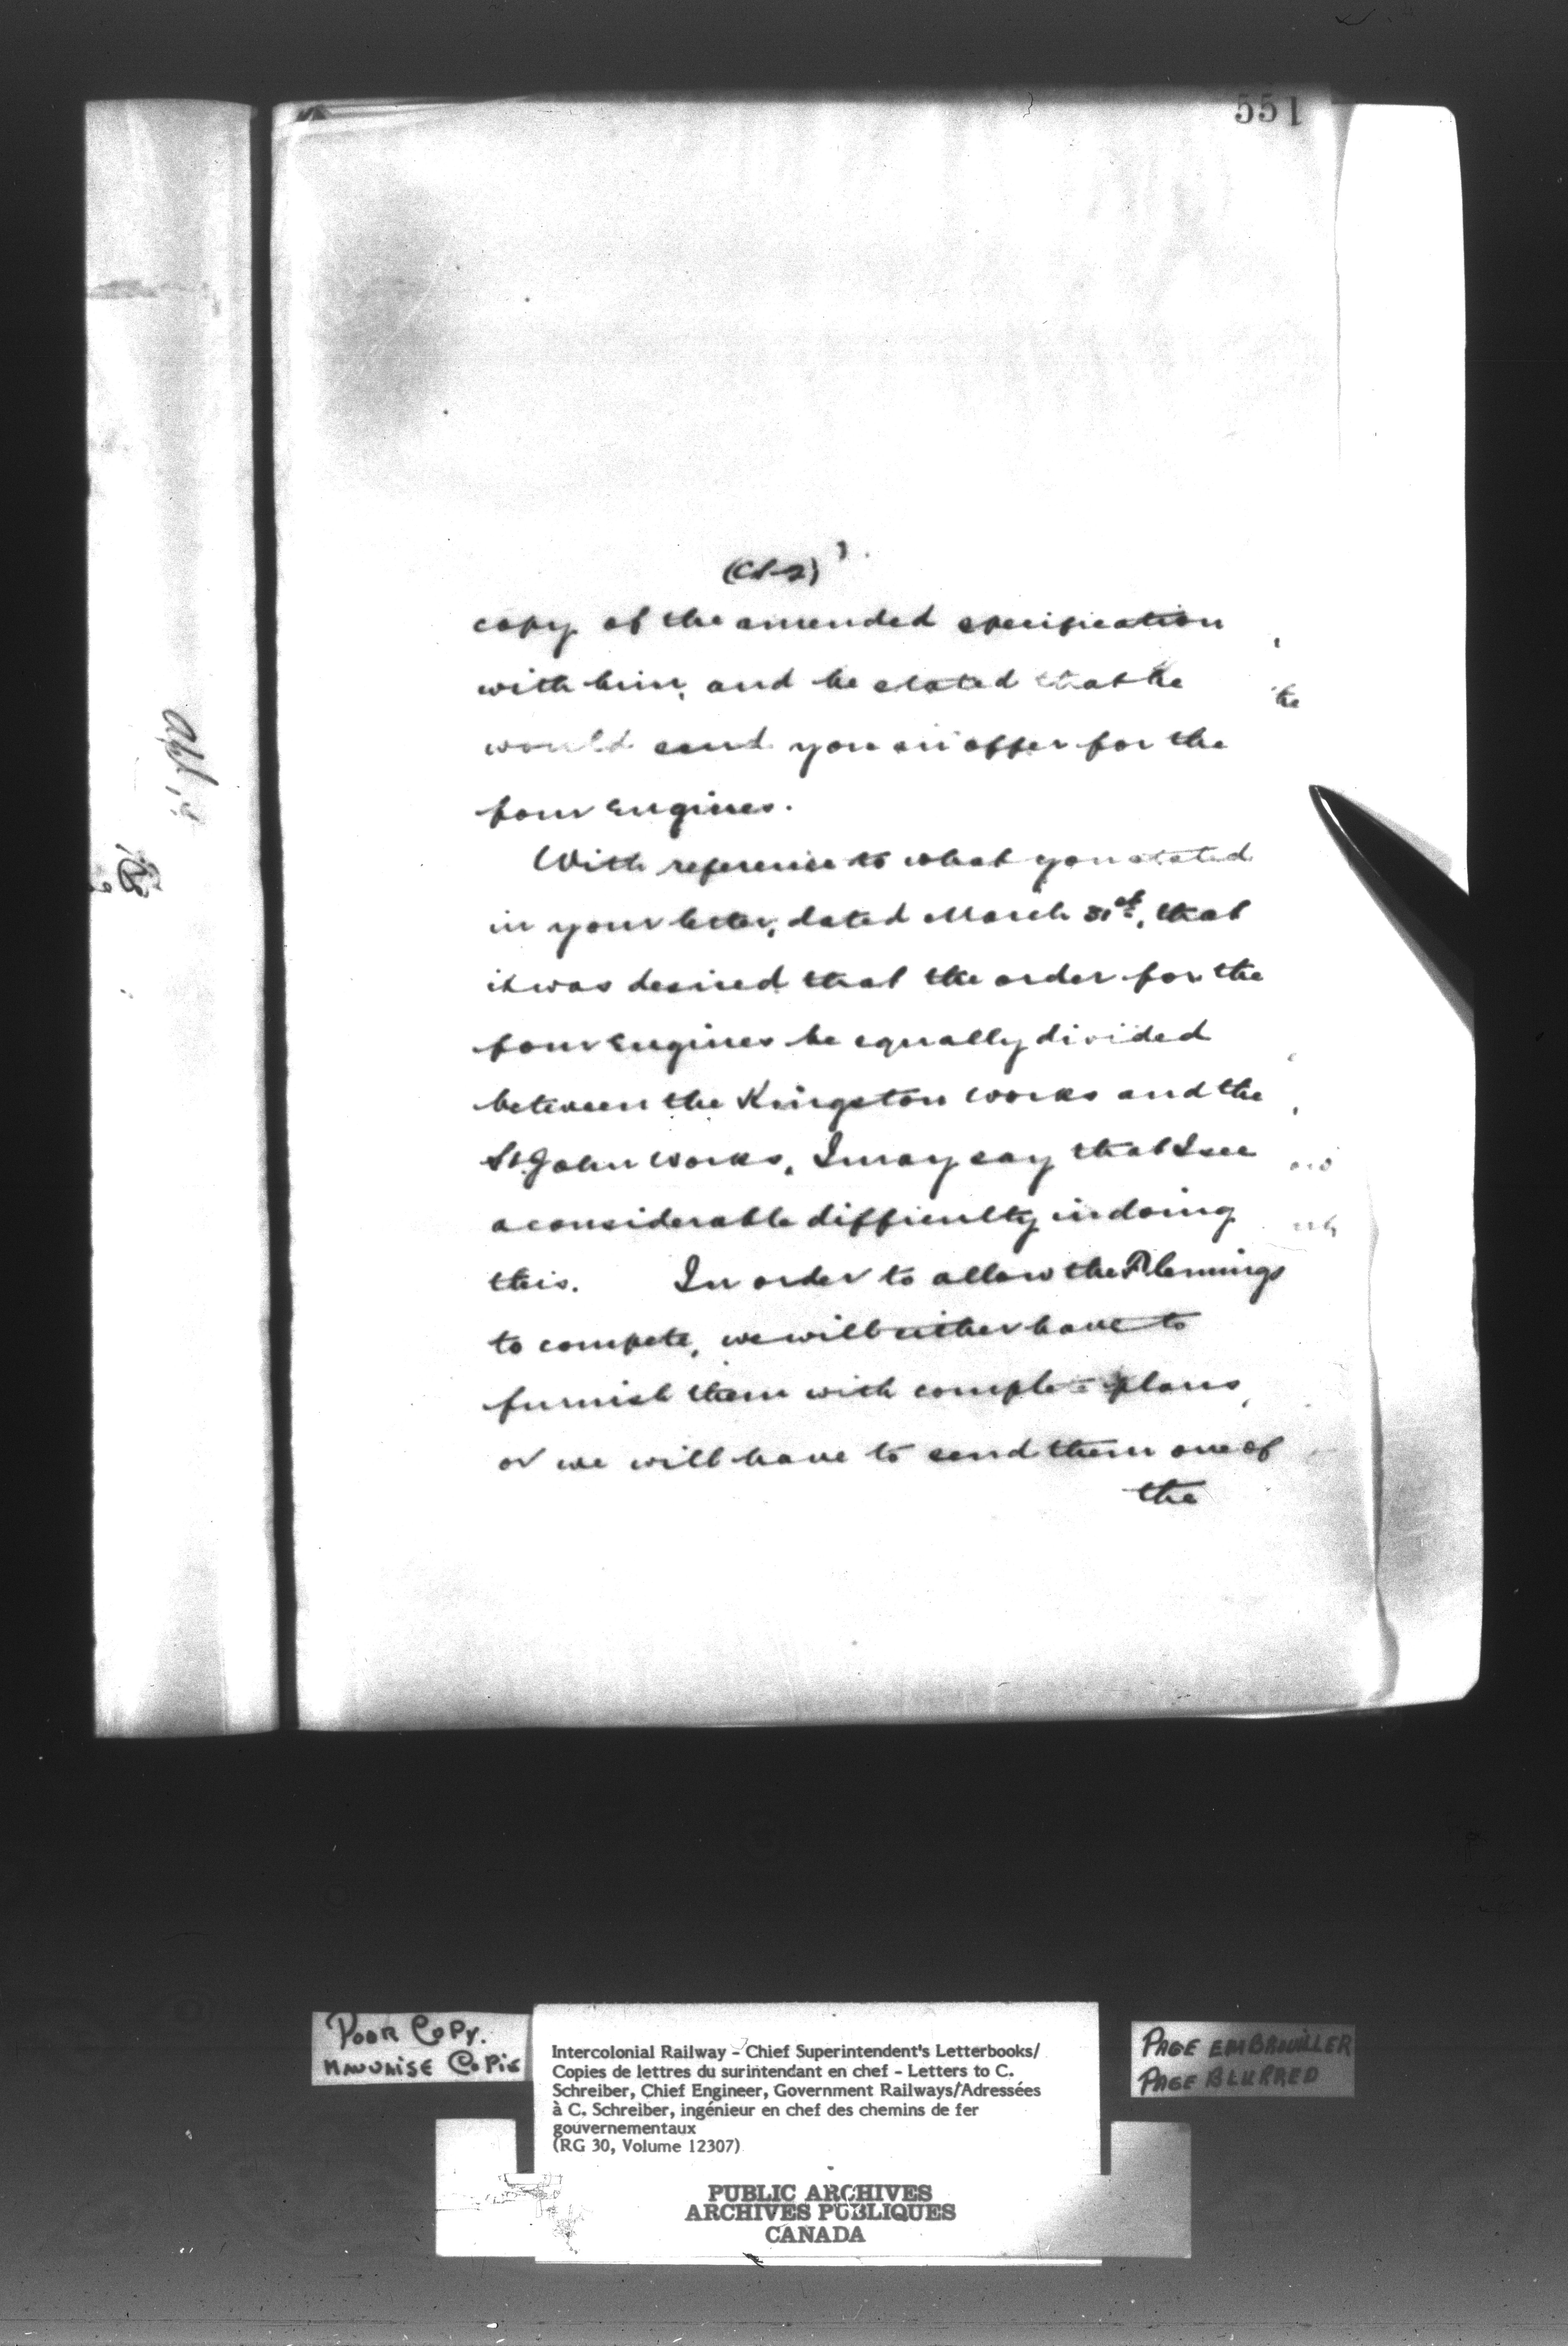 551
copy of the amended specification
with him, and he stated that he
would send you an offer for the
four Engines.
With reference to what you stated
in your letter, dated March 31st, that
it was desired that the order for the
four Engines be equally divided
between the Kingston Works and the
St. John Works, I may say that I see
a considerable difficulty in doing
this. In order to allow the Flemings
to compete, we will either have to
furnish them with complete plans,
or we will have to send them one of
the
POOR COPY.
MAUVAISE COPIE
Intercolonial Railway - Chief Superintendent's Letterbooks/
Copies de lettres du surintendant en chef - Letters to C.
Schreiber, Chief Engineer, Government Railways/Adressées
à C. Schreiber, ingénieur en chef des chemins de fer
gouvernementaux
(RG 30, Volume 12307)
PUBLIC ARCHIVES
ARCHIVES PUBLIQUES
CANADA
PAGE EMBROUILLER
PAGE BLURRED